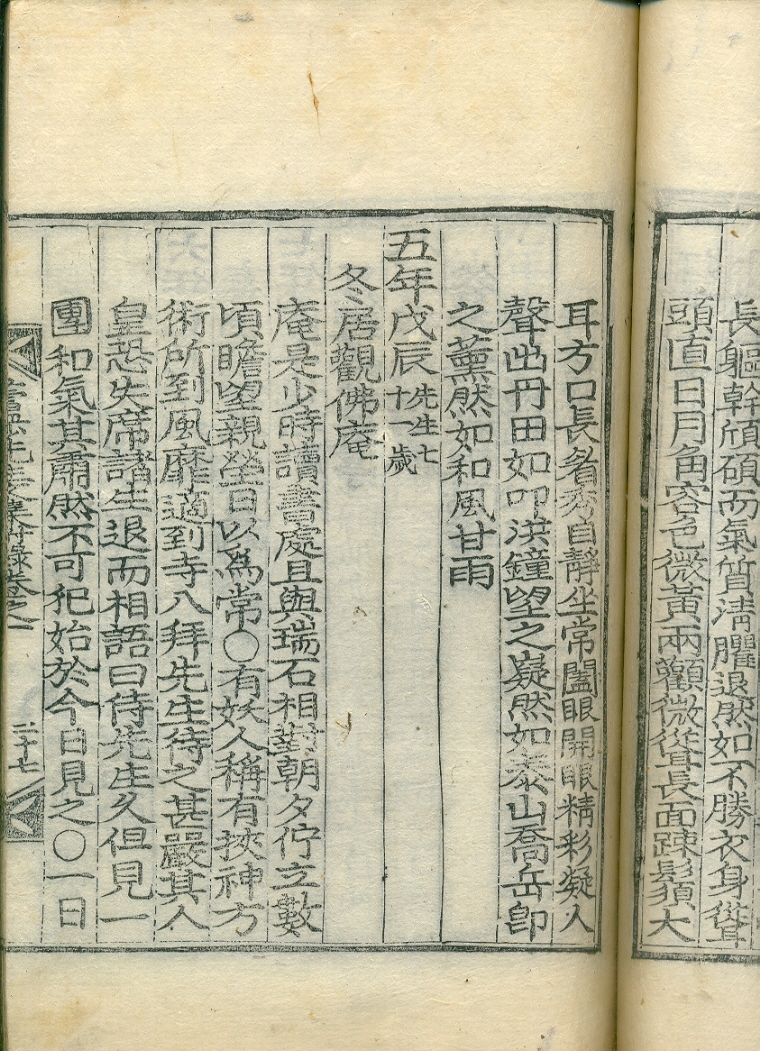 長軀幹頎碩而氣質淸臞退然如不勝衣身聳
頭直日月角容色微黃兩顴微聳長面踈鬚須大
耳方口長眉秀目靜坐常闔眼開眼精彩凝人
聲出丹田如叩洪鐘望之嶷然如泰山喬岳卽
之薰然如和風甘雨
五年戊辰先生七十一歲
冬居觀佛庵
庵是少時讀書處且與瑞石相對朝夕佇立數
頃瞻望親塋日以爲常○有妖人稱有挾神方
術所到風靡適到寺入拜先生待之甚嚴其人
皇恐失席諸生退而相語曰侍先生久但見一
團和氣其肅然不可犯始於今日見之○一日
先生集附錄卷之一 二十七